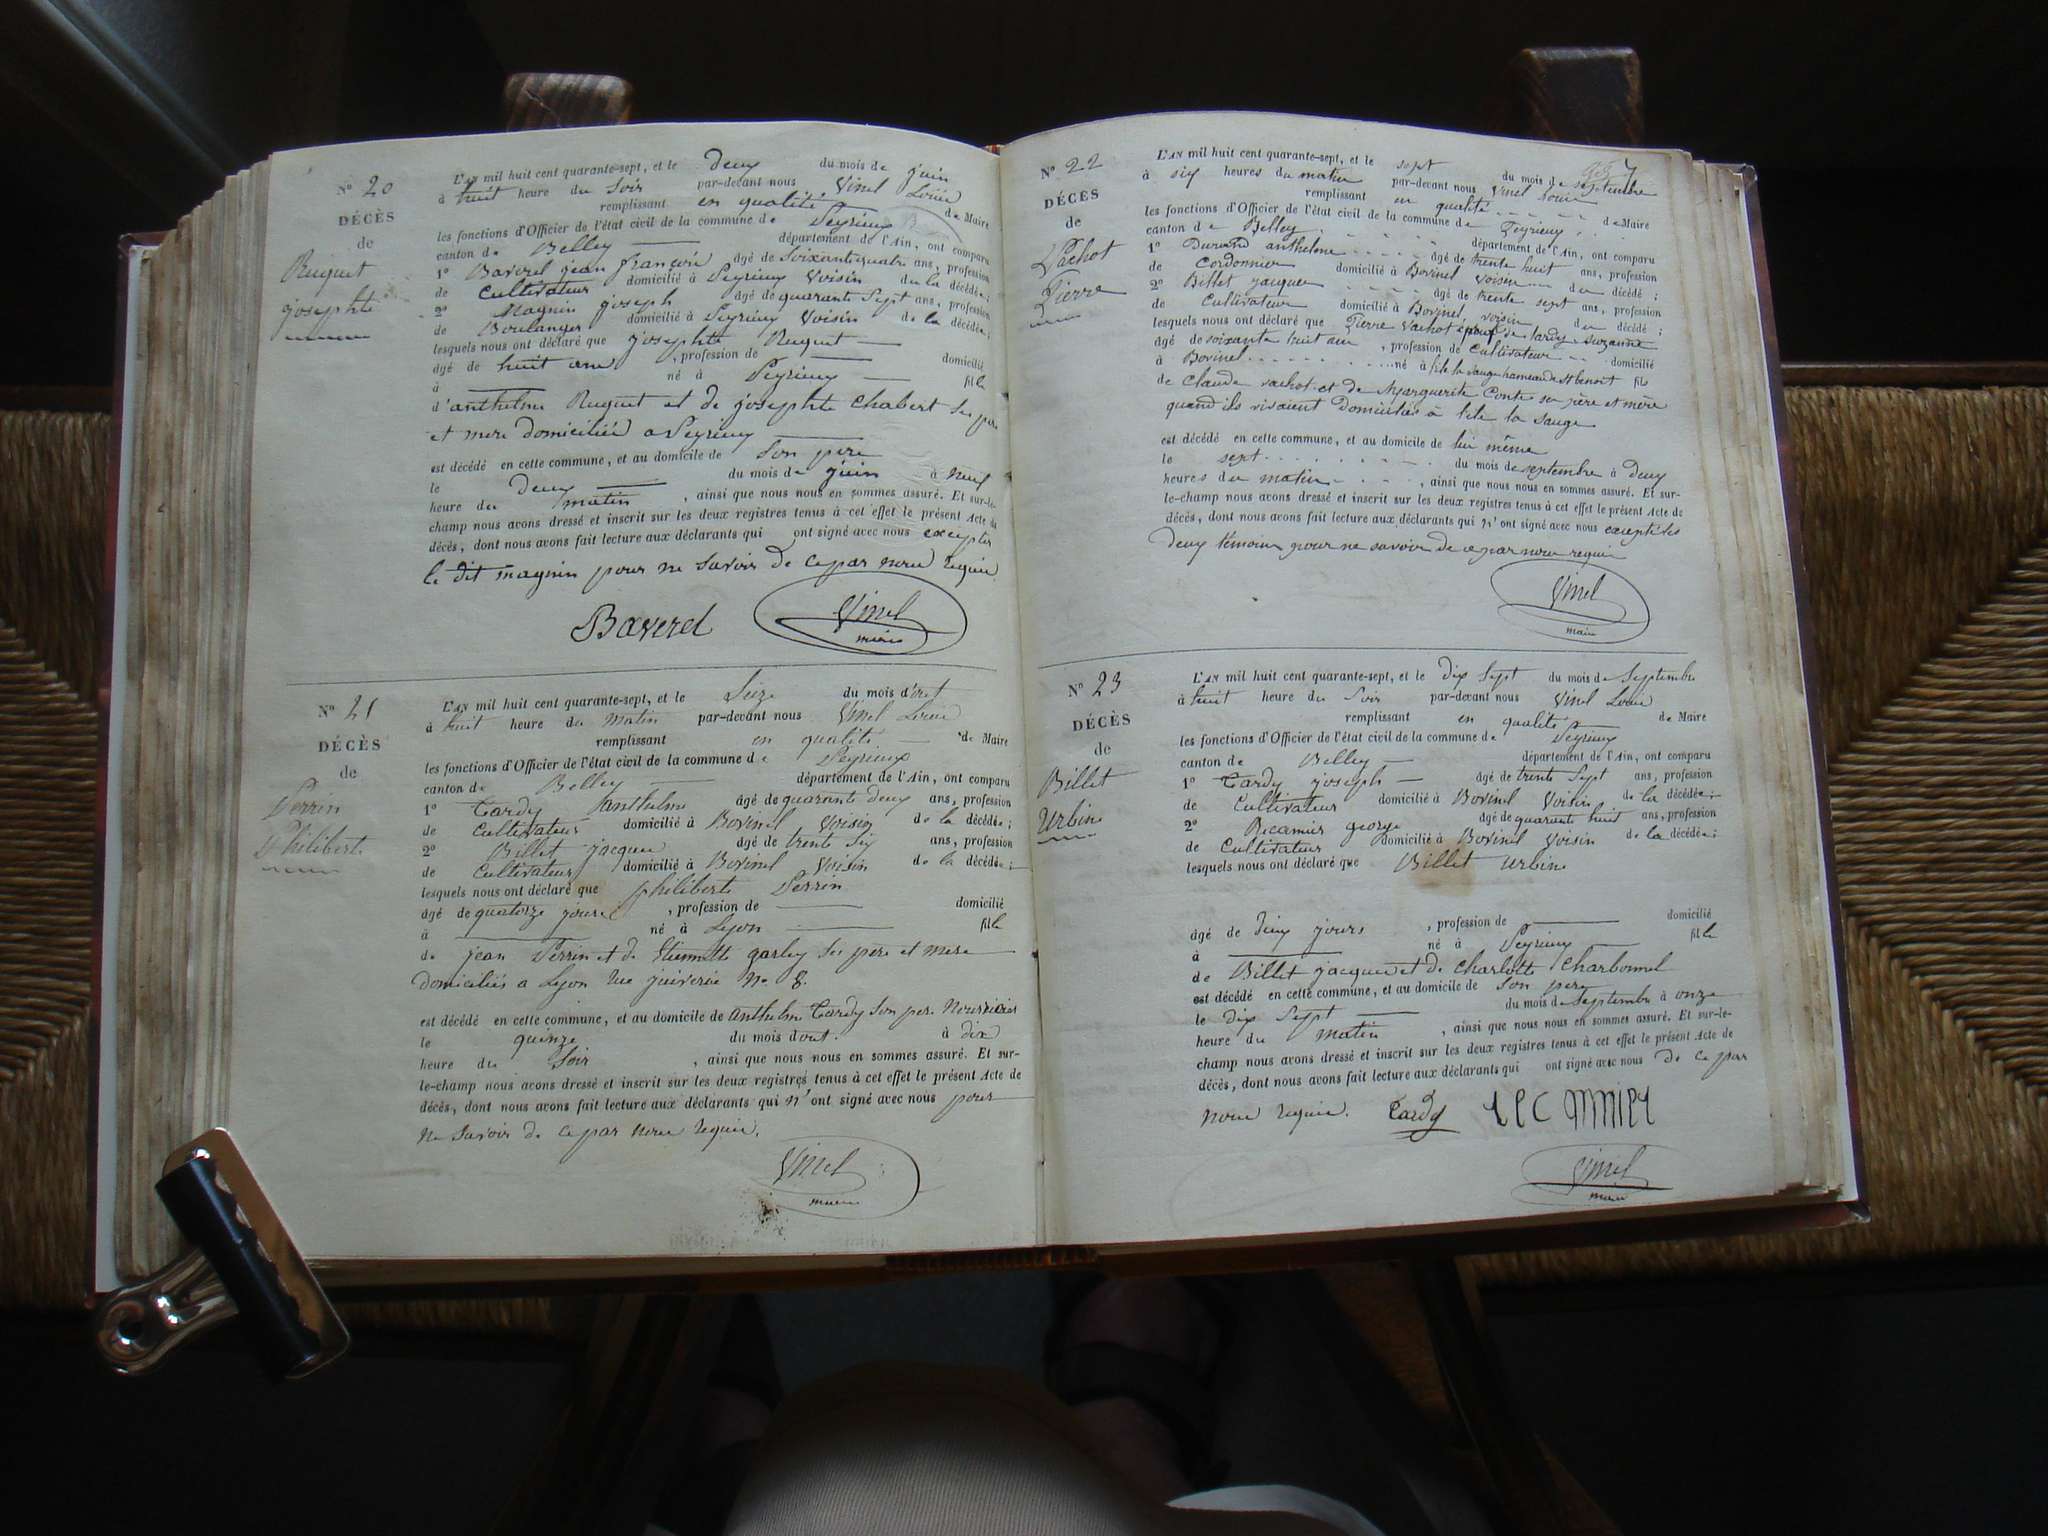 N° 20
DÉCÈS
de
Ruquet
josephte
L'AN mil huit cent quarante-sept, et le deux du mois de juin
à huit heure du Soir par-devant nous Vinel Louis
remplissant en qualité de Maire
les fonctions d'Officier de l'état civil de la commune de Peyrieux
canton de Belley département de l'Ain, ont comparu
1° Baverel jean françois âgé de Soixante quatre ans, profession
de Cultivateur domicilié à Peyrieux Voisin de la décédée;
2° Magnin joseph âgé de quarante Sept ans, profession
de Boulanger domicilié à Peyrieux Voisin de la décédée;
lesquels nous ont déclaré que josephte Ruquet
âgé de huit ans , profession de domicilié
à né à Peyrieux fille
d'anthelme Ruquet et de josephte Chabert Ses pere
et mere domiciliés a Peyrieux
est décédé en cette commune, et au domicile de Son pere
le deux du mois de juin à neuf
heure du matin , ainsi que nous nous en sommes assuré. Et sur-le-
champ nous avons dressé et inscrit sur les deux registres tenus à cet effet le présent Acte de
décès, dont nous avons fait lecture aux déclarants qui ont signé avec nous excepter
le dit magnin pour ne Savoir de ce par nous requis
Baverel Vinel
maire
N° 21
DÉCÈS
de
Perrin
Philiberte
L'AN mil huit cent quarante-sept, et le Seize du mois d'out
à huit heure du matin par-devant nous Vinel Louis
remplissant en qualité de Maire
les fonctions d'Officier de l'état civil de la commune de Peyrieux
canton de Belley département de l'Ain, ont comparu
1° Tardy anthelme âgé de quarante deux ans, profession
de Cultivateur domicilié à Bovinel Voisin de la décédée;
2° Billet jacques âgé de trente Six ans, profession
de Cultivateur domicilié à Bovinel Voisin de la décédée;
lesquels nous ont déclaré que philiberte Perrin
âgé de quatorze jours , profession de domicilié
à né à Lyon fille
de jean Perrin et de Etiennette garley Ses pere et mere
domiciliés a Lyon rue juiverie N° 8.
est décédé en cette commune, et au domicile de anthelme Tardy Son pere Nourricier
le quinze du mois d'out. à dix
heure du Soir , ainsi que nous nous en sommes assuré. Et sur-
le-champ nous avons dressé et inscrit sur les deux registres tenus à cet effet le présent Acte de
décès, dont nous avons fait lecture aux déclarants qui n'ont signé avec nous pour
ne Savoir de ce par nous requis.
Vinel
maire
N° 22
DÉCÈS
de
Vachot
Pierre
7
L'AN mil huit cent quarante-sept, et le sept du mois de septembre
à six heures du matin par-devant nous Vinel Louis
remplissant en qualité de Maire
les fonctions d'Officier de l'état civil de la commune de Peyrieux
canton de Belley département de l'Ain, ont comparu
1° Durand anthelme âgé de trente huit ans, profession
de Cordonnier domicilié à Bovinel Voisin du décédé;
2° Billet jacques âgé de trente sept ans, profession
de Cultivateur domicilié à Bovinel voisin du décédé;
lesquels nous ont déclaré que Pierre Vachot époux de tardy suzanne
âgé de soixante huit ans , profession de Cultivateur domicilié
à Bovinel né à file la sauge hameau de St benoit fils
de Claude vachot et de Marguerite Conte ses père et mère
quand ils vivaient Domiciliés à file la sauge
est décédé en cette commune, et au domicile de lui même
le sept du mois de septembre à deux
heures du matin , ainsi que nous nous en sommes assuré. Et sur-
le-champ nous avons dressé et inscrit sur les deux registres tenus à cet effet le présent Acte de
décès, dont nous avons fait lecture aux déclarants qui n'ont signé avec nous excepté les
deux témoins pour ne savoir de ce par nous requis
Vinel
maire
N° 23
DÉCÈS
de
Billet
Urbine
L'AN mil huit cent quarante-sept, et le dix Sept du mois de Septembre
à huit heure du Soir par-devant nous Vinel Louis
remplissant en qualité de Maire
les fonctions d'Officier de l'état civil de la commune de Peyrieux
canton de Belley département de l'Ain, ont comparu
1° Tardy joseph âgé de trente Sept ans, profession
de Cultivateur domicilié à Bovinel Voisin de la décédée;
2° Récamier george âgé de quarante huit ans, profession
de Cultivateur domicilié à Bovinel Voisin de la décédée;
lesquels nous ont déclaré que Billet Urbine
âgé de deux jours , profession de domicilié
à né à Peyrieux fille
de Billet jacques et de Charlotte Charbonnel
est décédé en cette commune, et au domicile de Son pere
le dix Sept du mois de Septembre à onze
heure du matin , ainsi que nous nous en sommes assuré. Et sur-le-
champ nous avons dressé et inscrit sur les deux registres tenus à cet effet le présent Acte de
décès, dont nous avons fait lecture aux déclarants qui ont signé avec nous de ce par
nous requis. Tardy recamier
Vinel
maire